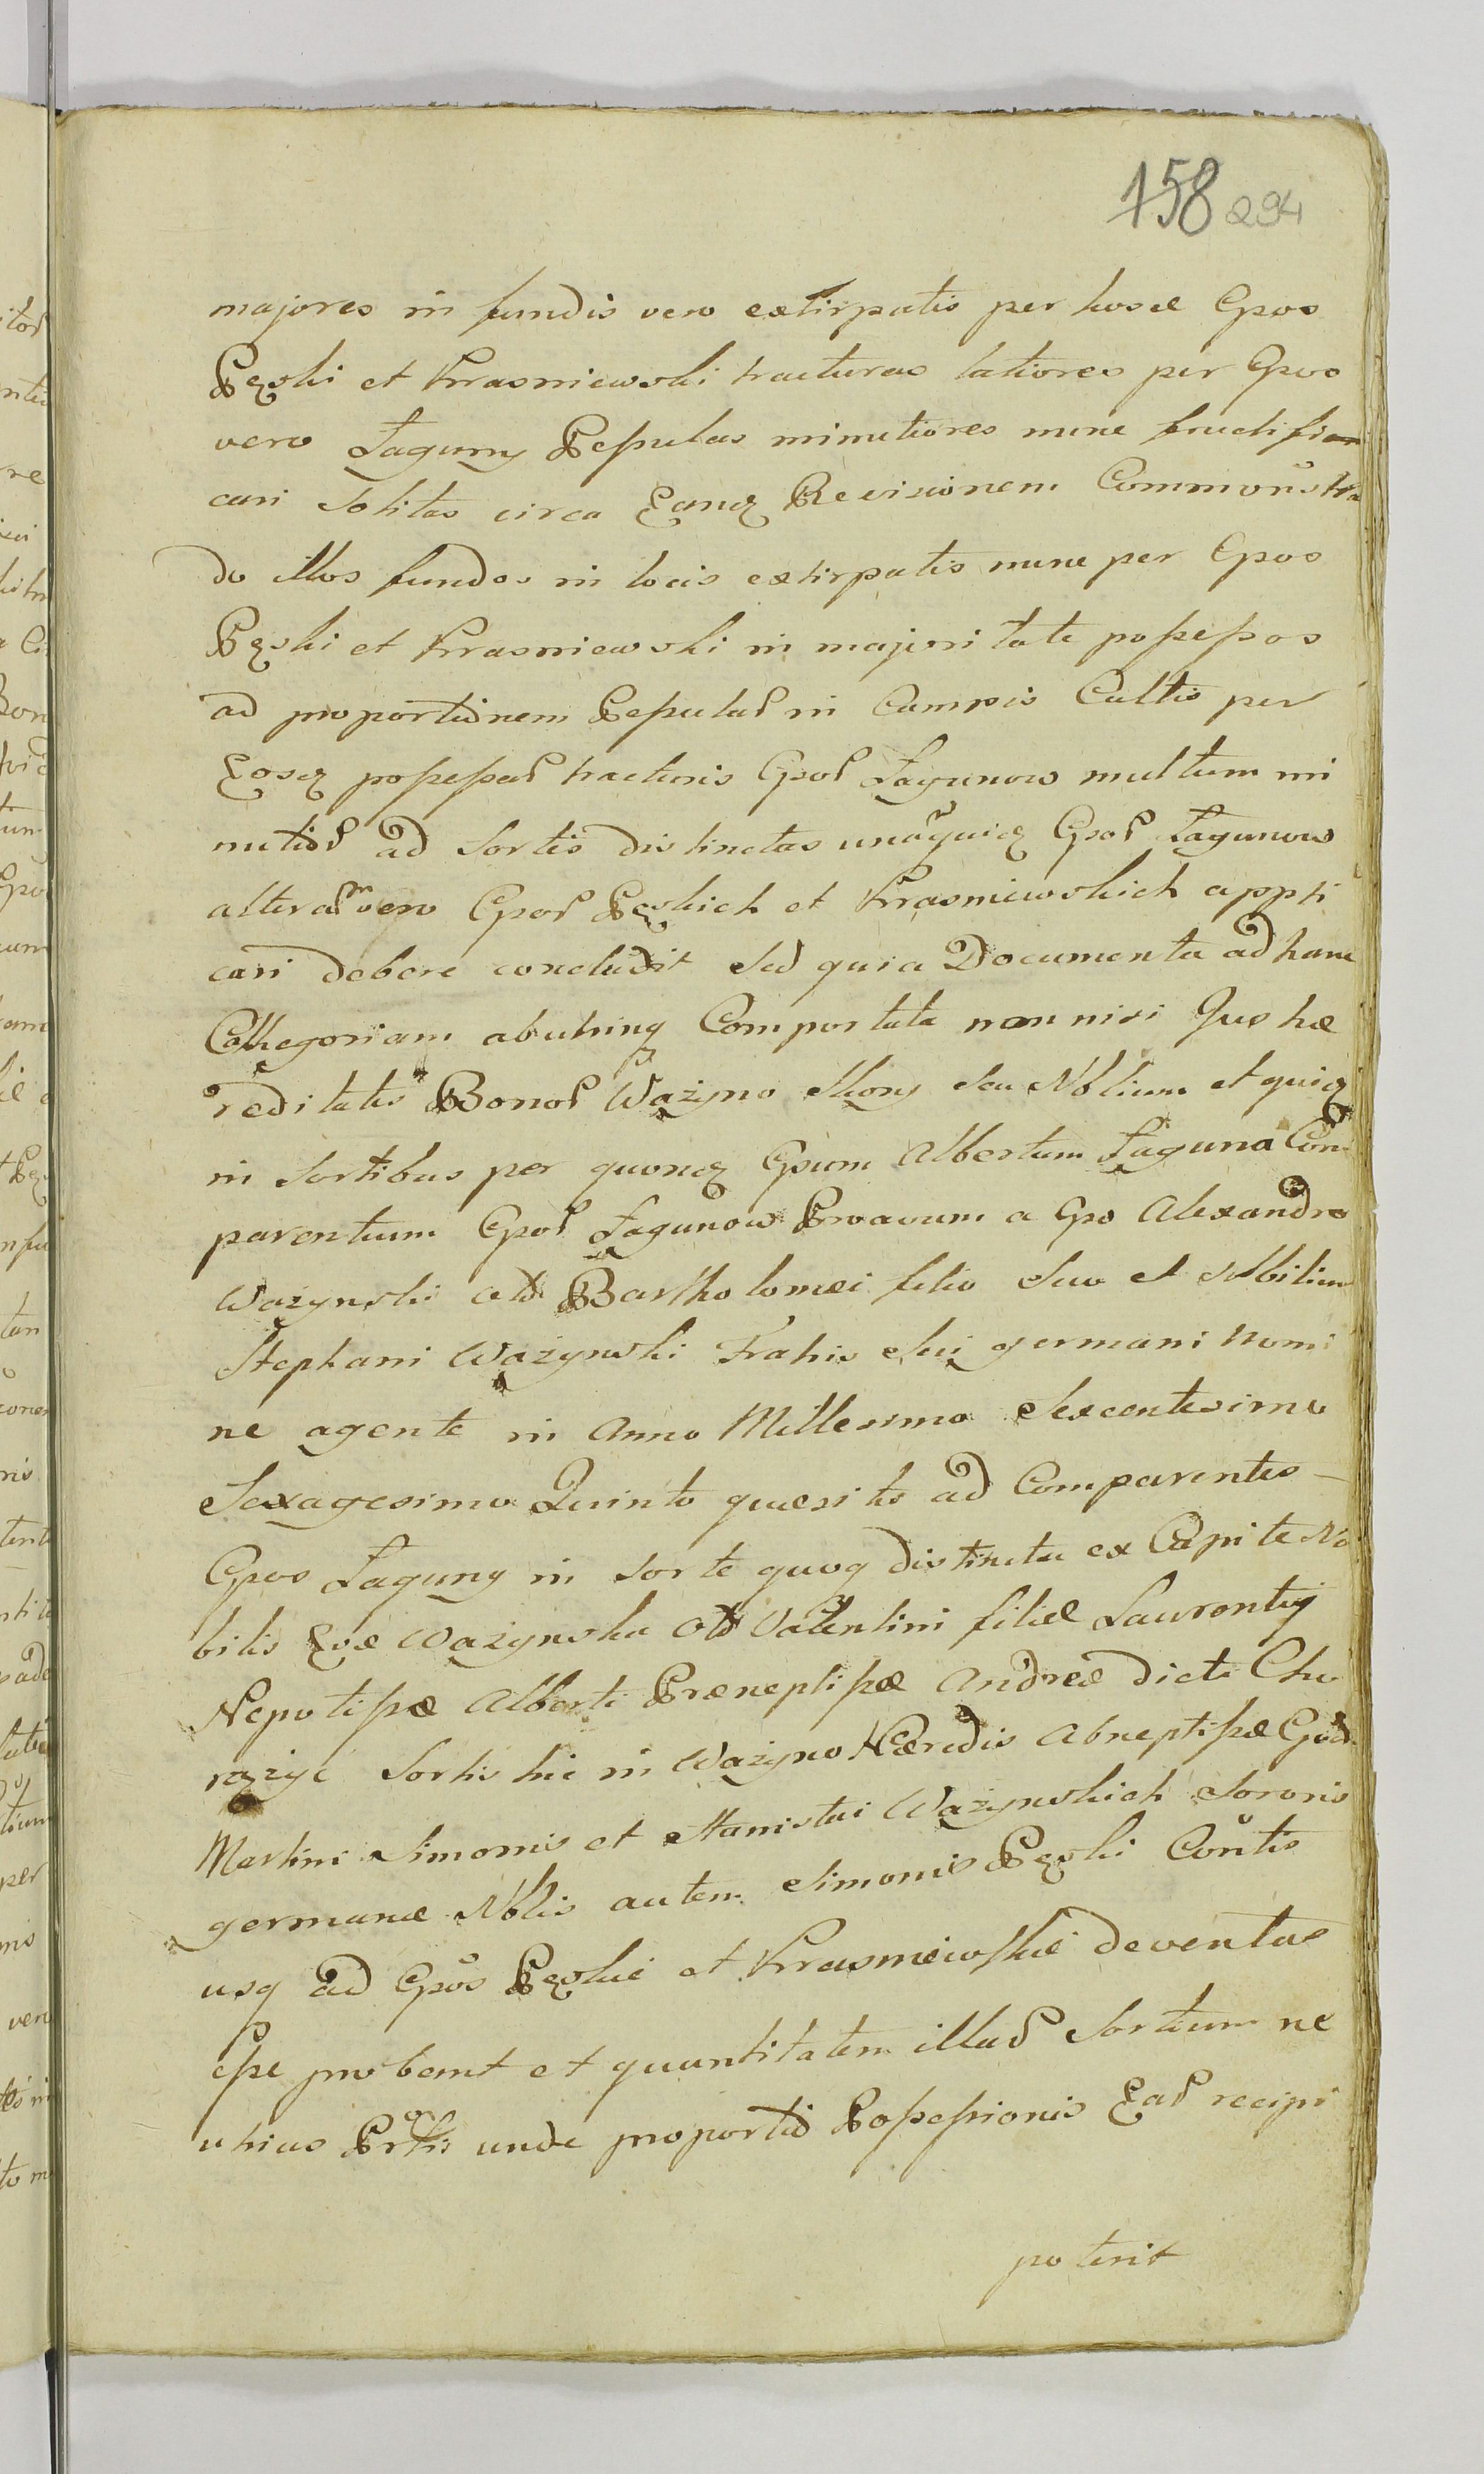 158 294
majores in fundis vero extirpatis per hosce Gpos
Pęski et Krasniewski tracturas latiores per Gpos
vero Łaguny Pessulas minutiores nunc fructifi
cari solitas circa Eanq Revisionem Commonstra
do illos fundos in locis extirpatis nunc per Gpos
Pęski et Krasniewski in majoritate possessos
ad proportionem Pessular in Campis Cultis per
Eosq possessar tracturis Gpor Łagunow multum mi
nutior ad Sortes distinctas unaquicq Gpor Łagunow
alteram vero Gpor Pęskich et Krasniewskich appli
cari debere concludit Sed quia Documenta ad hanc
Cathegoriam abutrinq Comportata non nisi Jus hæ
reditatis Bonor Ważyno Skony Seu Nblium et quicq
in Sortibus per quonq Gpum Albertum Łaguna Com
parentium Gpor Łagunow Proavum a Gpo Alexandro
Ważynski old Bartholomæi filio Suo et Nobilium
Stephani Ważynski Fratris Sui germani nomi
ne agente in Anno Millesimo Sexcentesimo
Sexagesimo Quinto quæsitis ad Comparentes
Gpos Łaguny in Sorte quoq distincta ex Capite No
bilis Evæ Ważynska old Valentini filiæ Laurentij
Nepotissæ Alberti Præneptissæ Andreæ dicti Cho
rąży Sortis hic in Ważyno Hæredis Abneptissæ Gpor
Martini Simonis et Stanislai Ważynskich Sororis
germanæ Nblis autem Simonis Pęski Contis
usq ad Gpos Pęskie et Krasniewskie deventas
esse probant et quantitatem illar Sortium ne
utrius Prtis unde proportio Possessionis Ear recipi
poterit